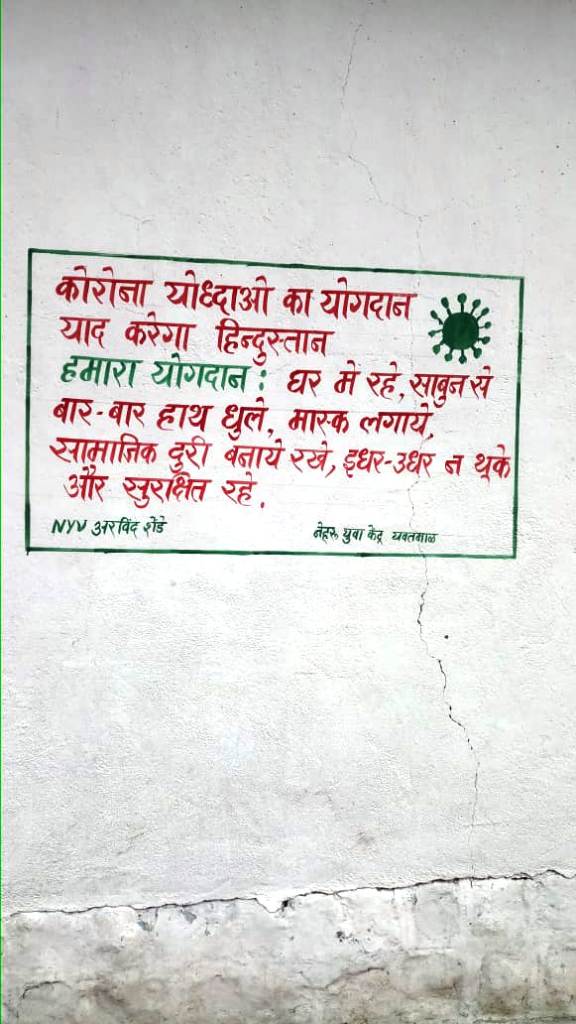 कोरोना योध्दाओ का योगदान
याद करेगा हिन्दुस्तान
हमारा योगदान : घर मे रहे, साबुन से
बार-बार हाथ धुले, मास्क लगाये,
सामाजिक दुरी बनाये रखे, इधर-उधर न थूके
और सुरक्षित रहे.
NYV अरविंद शेंडे नेहरू युवा केंद्र यवतमाळ